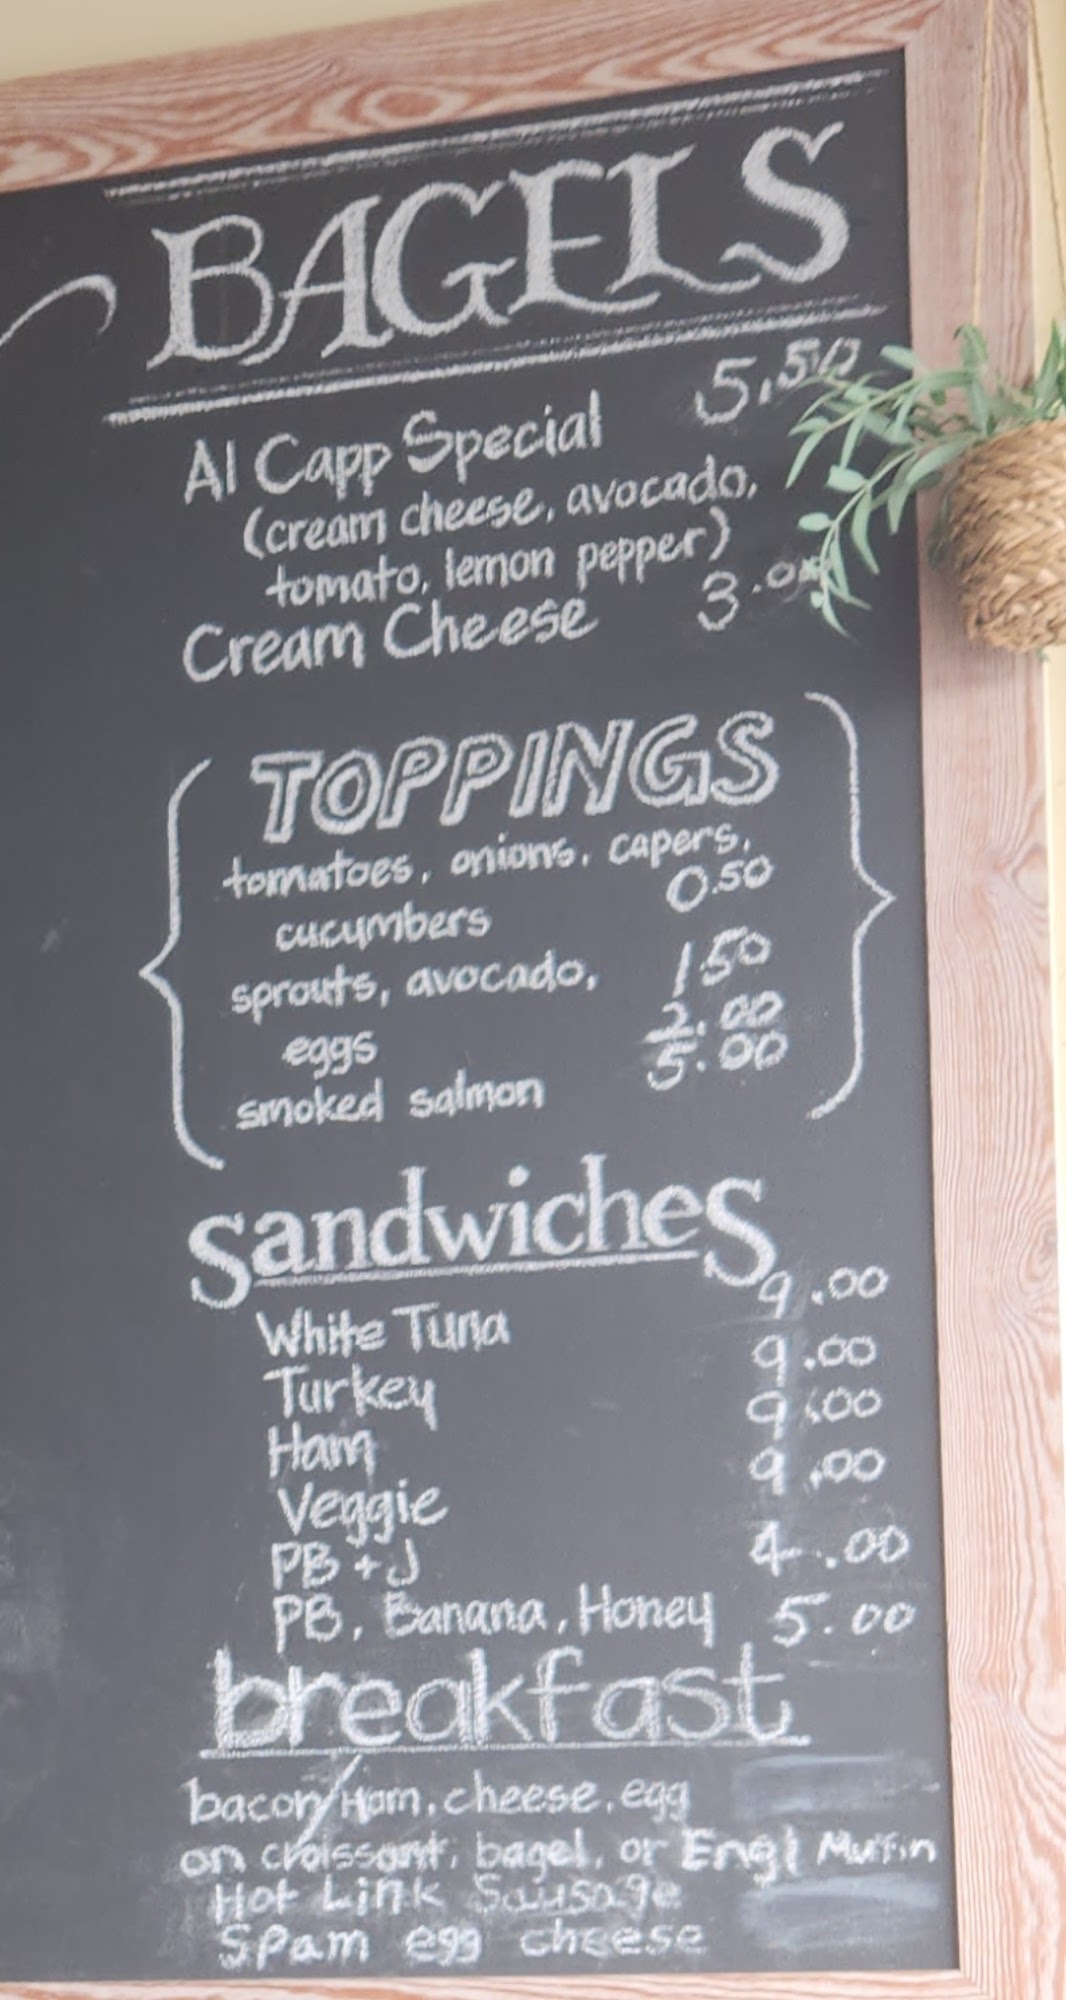 BAGELS
Al Capp Special 5.50
(cream cheese, avocado,
tomato, lemon pepper)
Cream Cheese 3.00
TOPPINGS
tomatoes, onions, capers,
cucumbers 0.50
sprouts, avocado, 1.50
eggs 2.00
smoked salmon 5.00
Sandwiches
White Tuna 9.00
Turkey 9.00
Ham 9.00
Veggie 9.00
PB + J 4.00
PB, Banana, Honey 5.00
breakfast
bacon/Ham, cheese, egg
on croissant, bagel, or Engl Muffin
Hot Link Sausage
Spam egg cheese